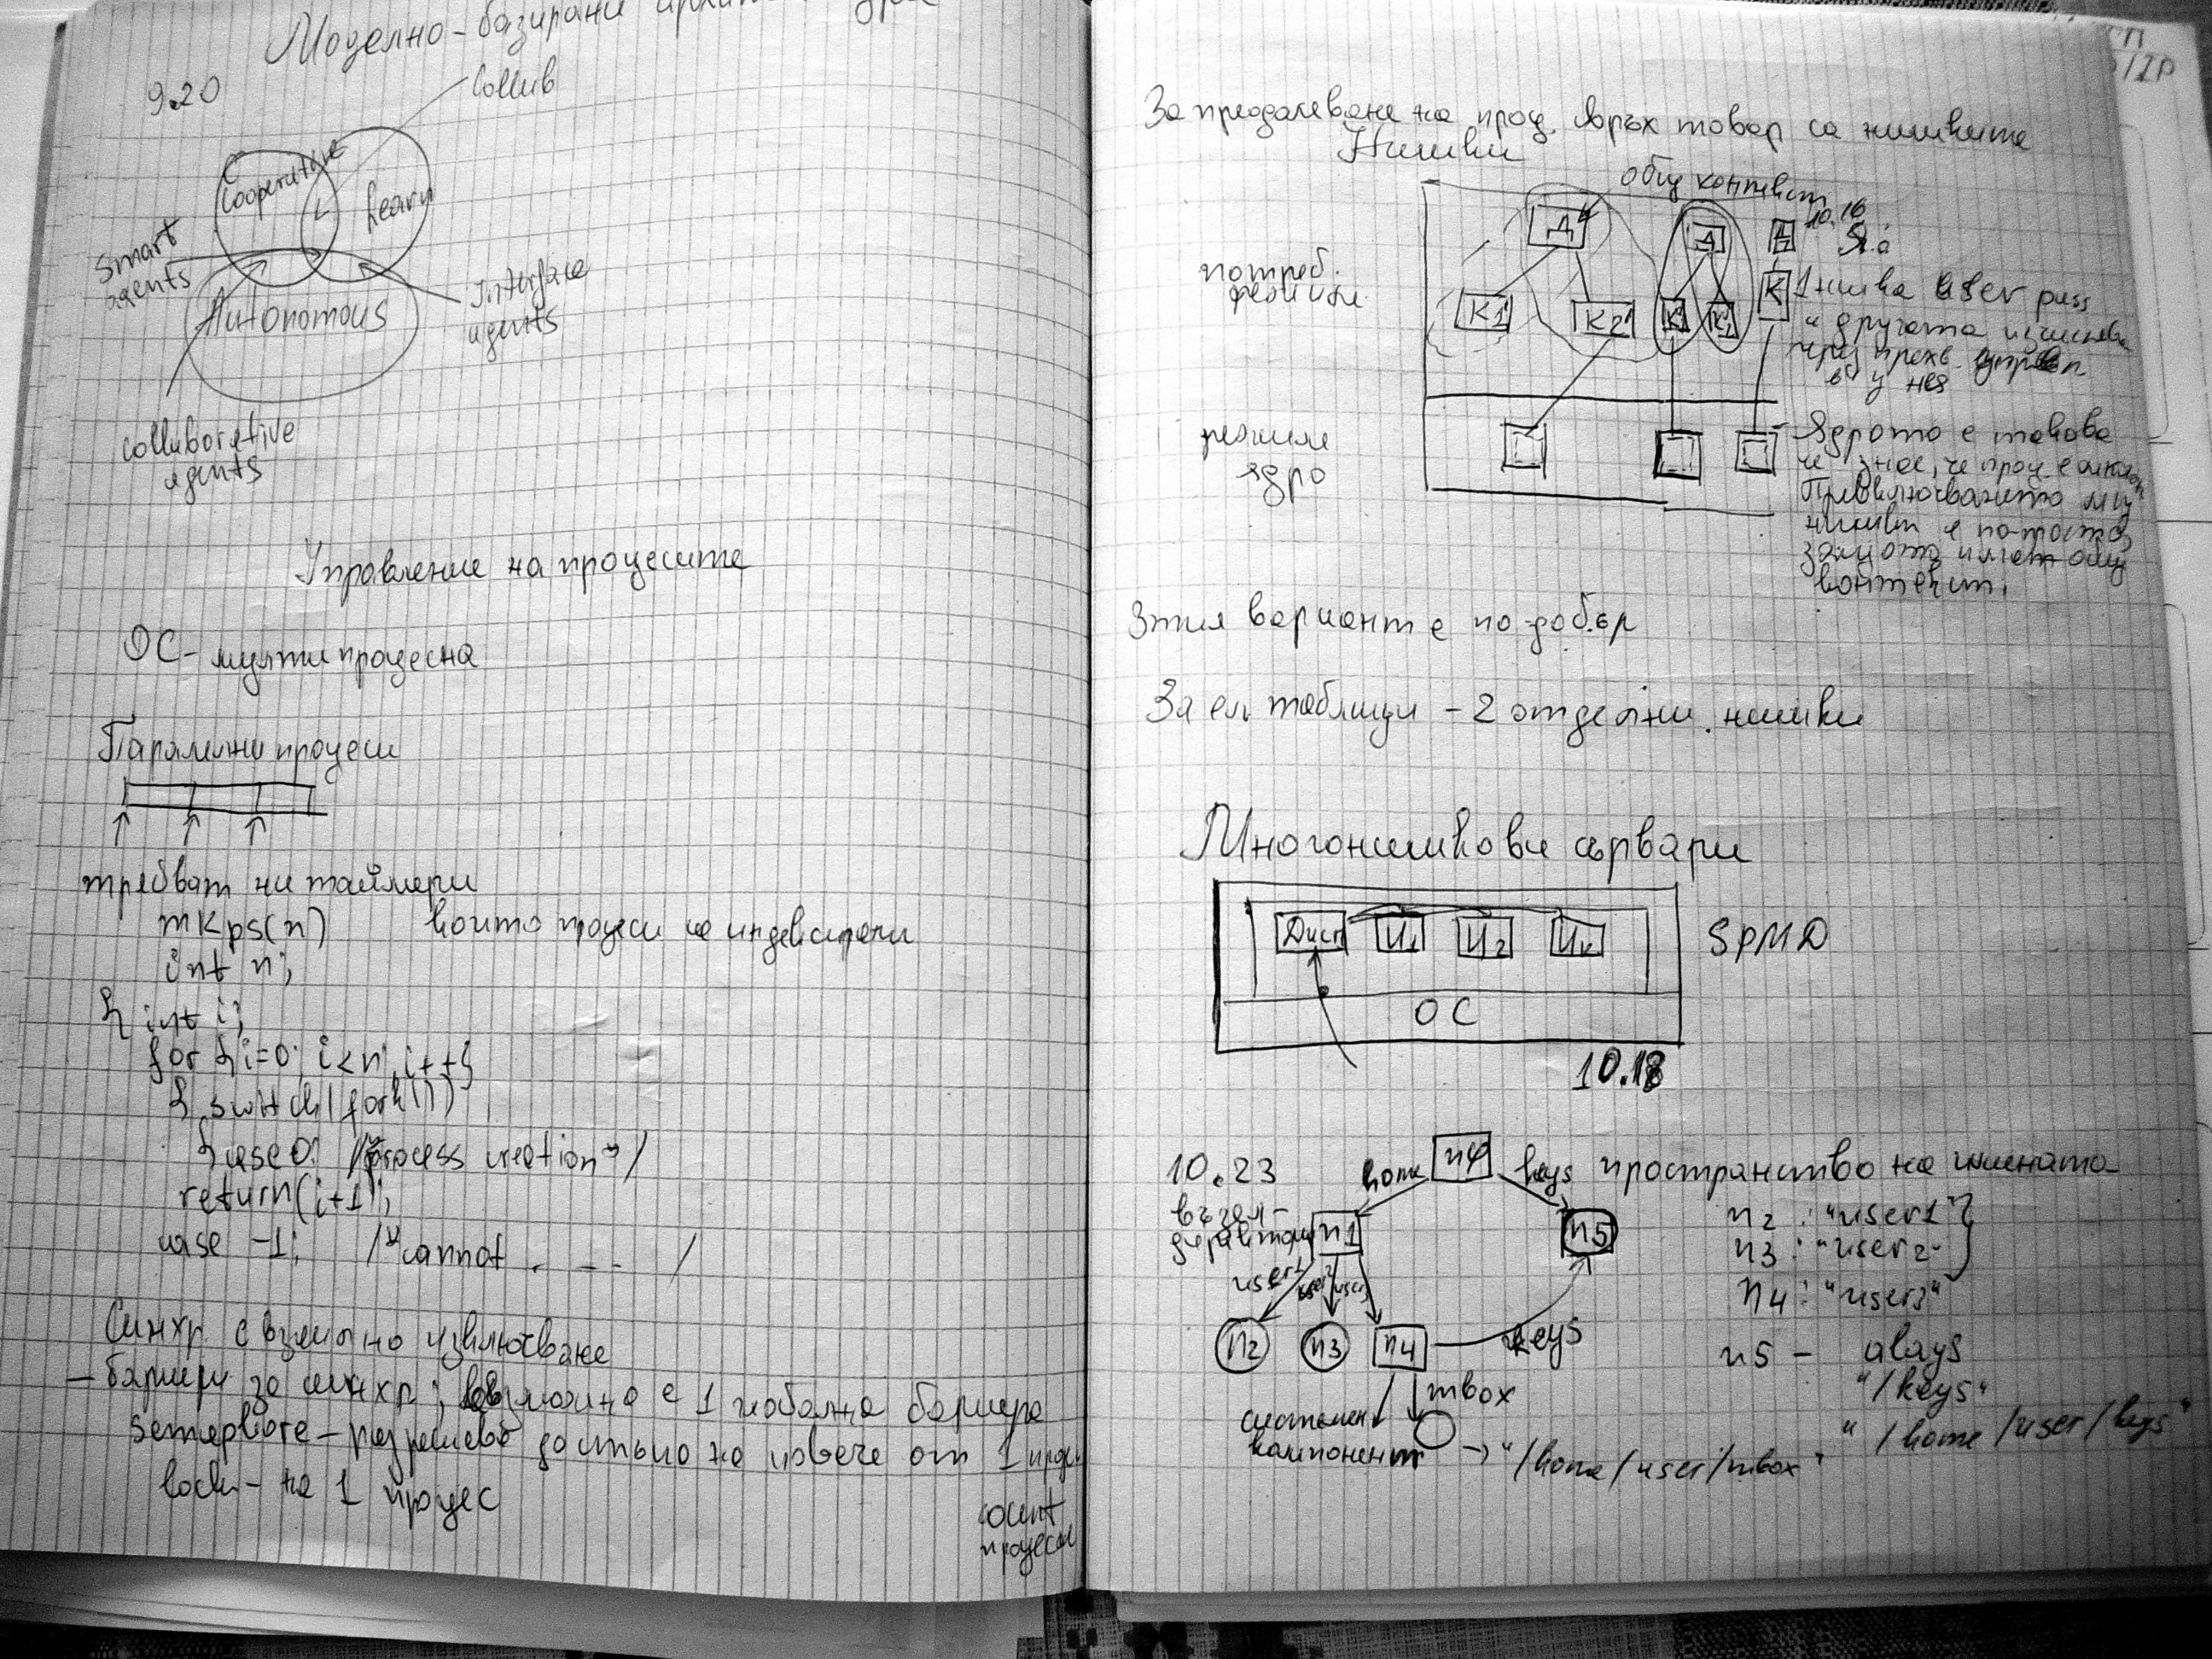 Моделно-базирани
9.20
Collub
Cooperative
Learn
Smart
agents
Autonomous
Interface
agents
colluboretive
agents
Управление на процесите
ОС - мулти процесна
Паралелни процеси
трябват ни таймери
mkps(n)
които процеси са
int n;
{ int i;
for { i=0; i<n; i++}
{ switch(fork())
{ case 0: /* process creation */
return(i+1);
case -1: /* cannot . - - /
Синхр с взаимно изключване
- бариери за синхр; възможно е 1 глобална бариера
semaphore - разрешава достъп на повече от 1
lock - на 1 процес
count
процеси
За преодоляване на проц. свръх товар са нишките
Нишки
общ контекст
Д
Д
Д
10.16
потреб.
режим
K1
K2
K1
K2
K
1 нишка user pass
и другата изчислява
през прехв. управл
в у нея
режим
ядро
Ядрото е такова
че знае, че проц е
Превключването м/у
нишки е по-просто,
защото имат общ
контекст.
Этия вариант е по-добър
За ел таблици - 2 отделни нишки
Многонишкови сървари
Дисп
И1
И2
Иk
SPMD
ОС
10.18
10.23
home
keys
пространство на имената
възел-
директория
n1
n5
n2 : "user1"
n3 : "user2"
n4 : "user3"
user1
user2
user3
n2
n3
n4
keys
n5 - alays
"/keys"
"/home/user/keys"
mbox
системен
компонент
→ "/home/user/mbox"